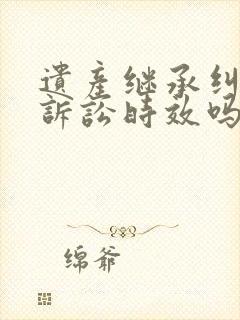 遺産继承纠
訴訟時效吗
绵爺